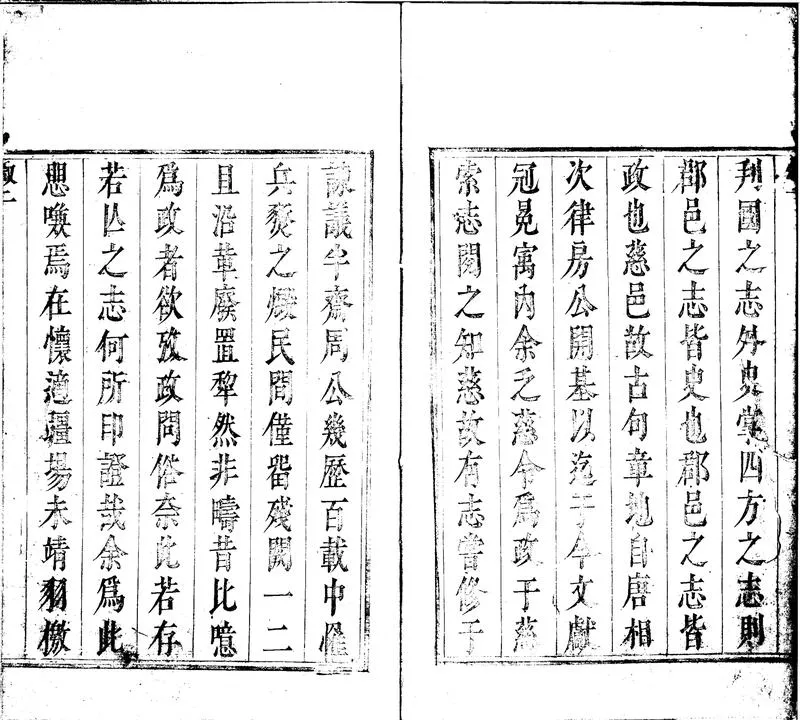 列國之志外史掌四方之志則
郡邑之志皆史也郡邑之志皆
政也慈邑故古句章地自唐相
次律房公開基以迄于今文獻
冠冕寓內余乏慈令為政于慈
索志閱之知慈故有志嘗修于
諫議牟齋周公幾歷百載中罹
兵燹之燬民間僅留殘闕一二
且沿革廢置犁然非疇昔比噫
為政者欲攷政問俗奈此若存
若亾之志何所印證哉余為此
愳喚焉在懷適疆埸未靖羽檄